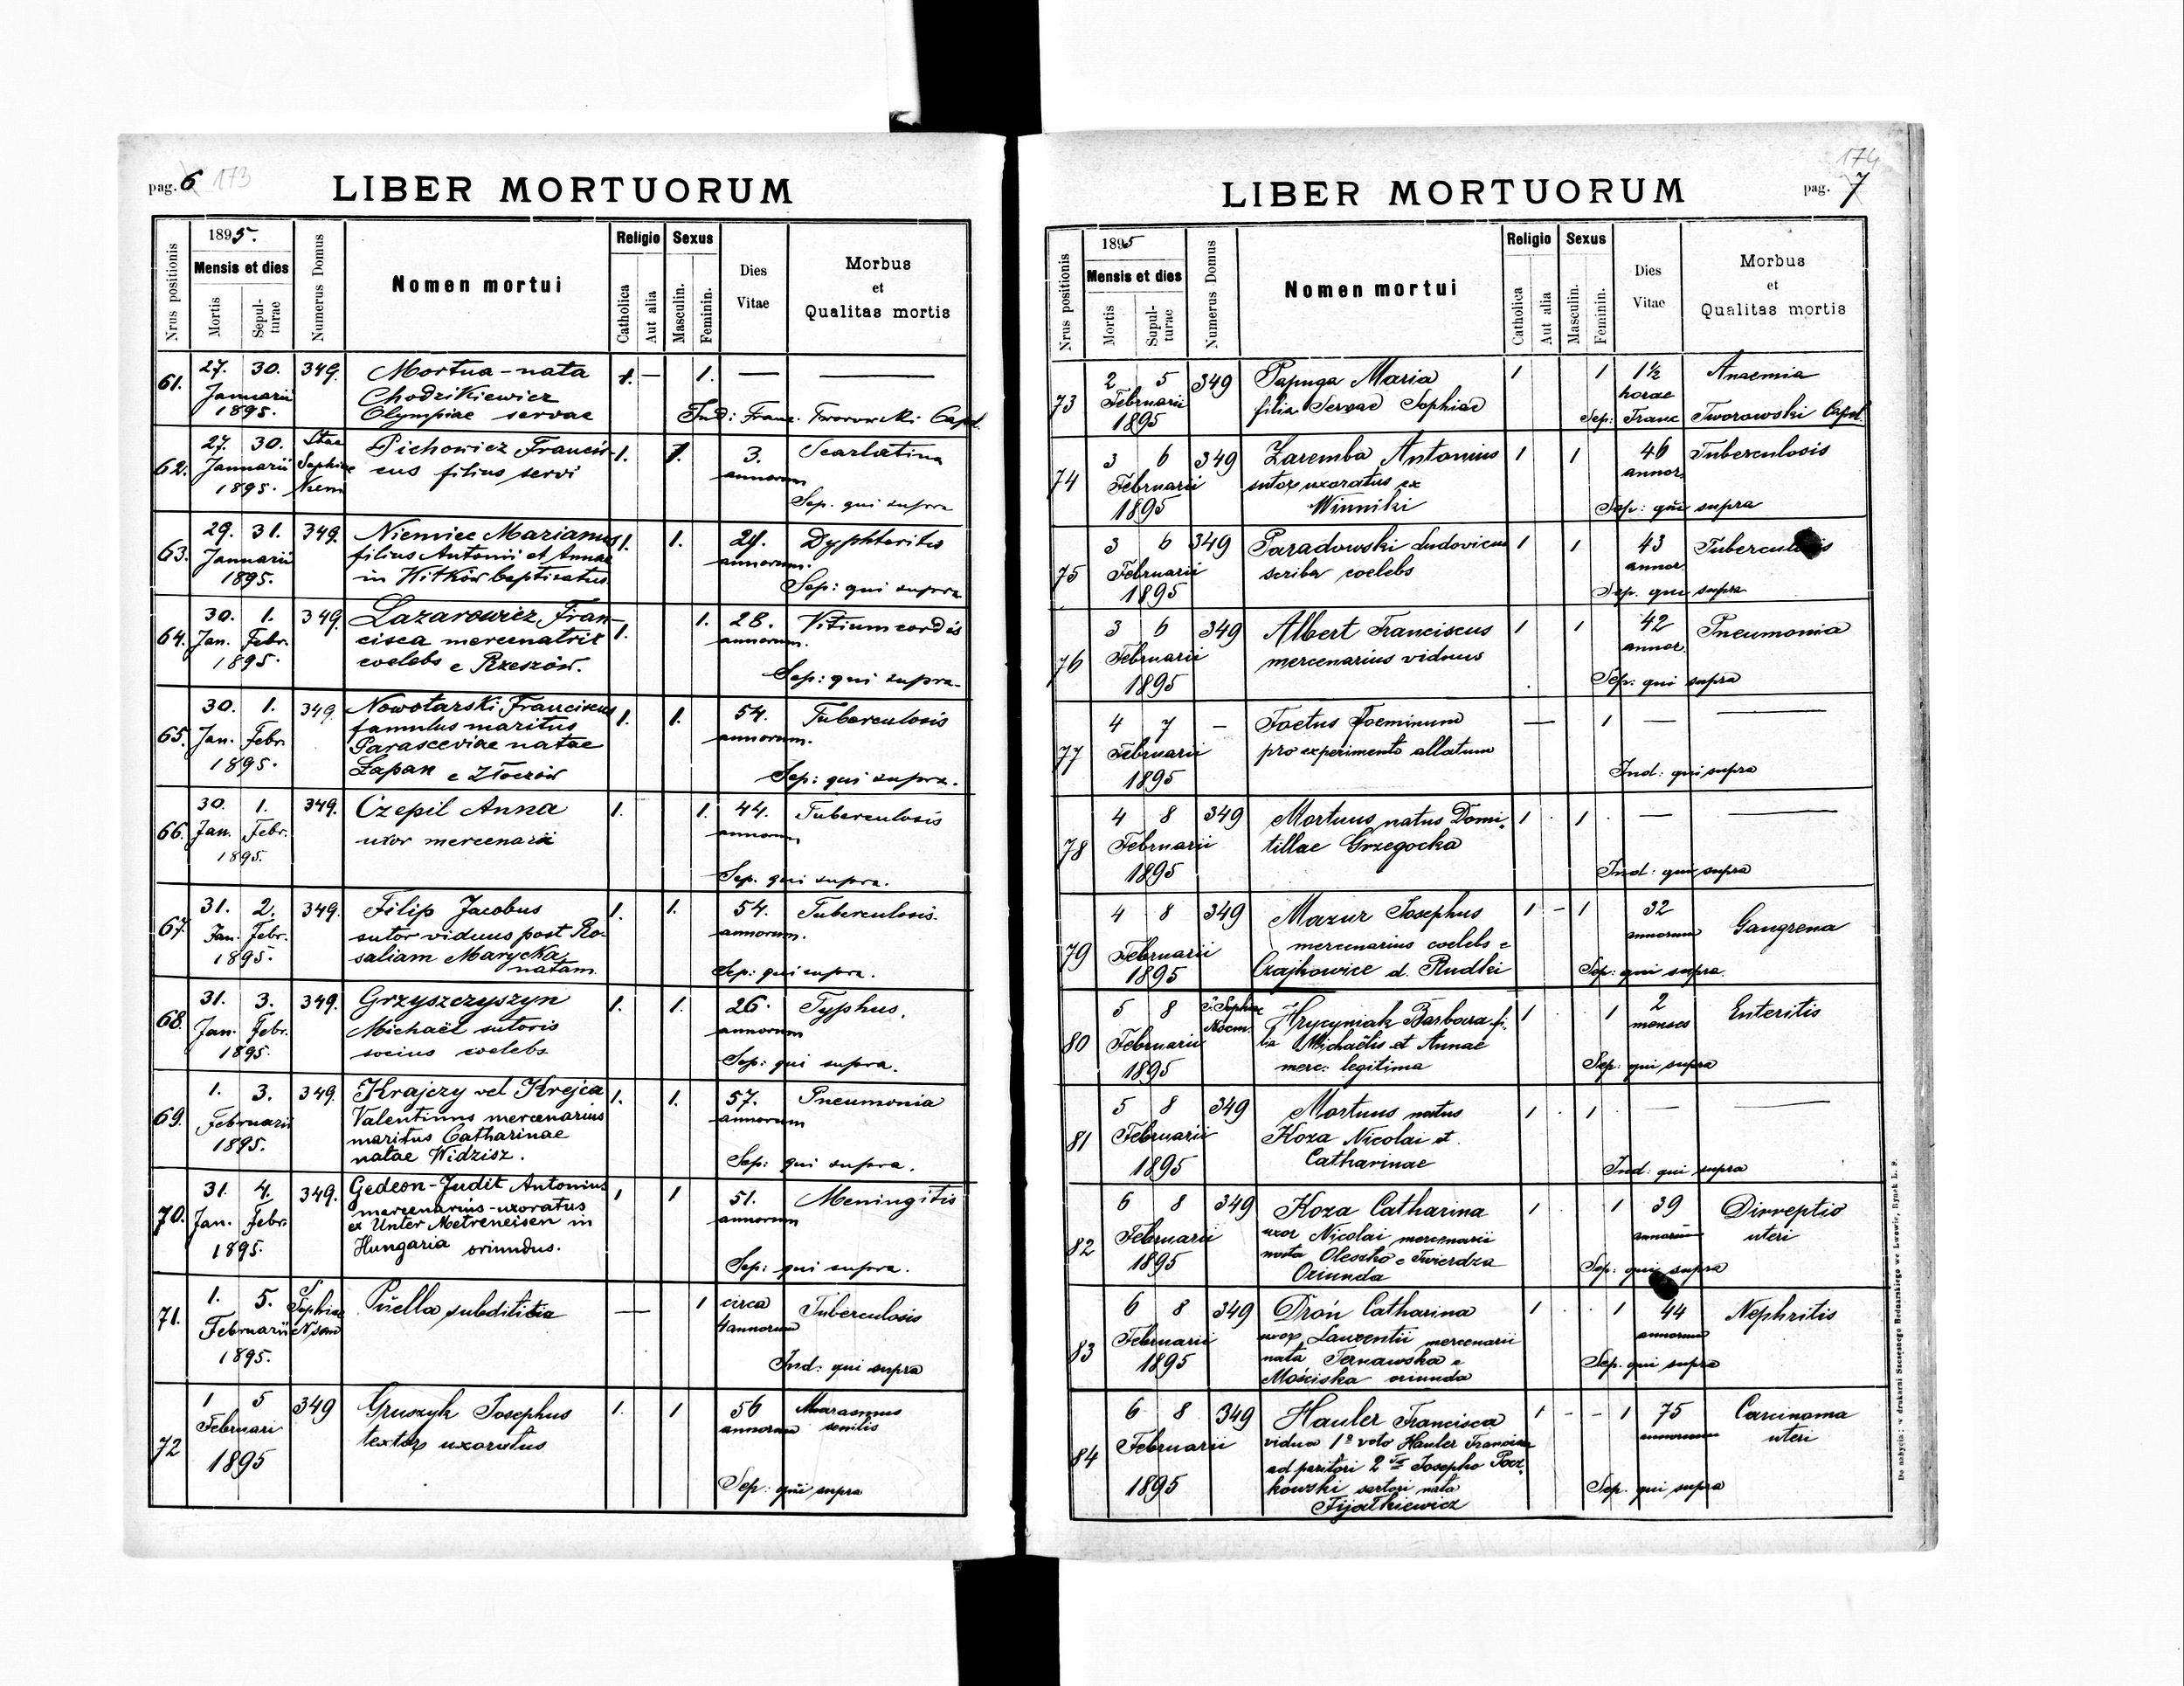 pag. 6 173
LIBER MORTUORUM
Nrus positionis
1895.
Mensis et dies
Mortis
Sepulturae
Numerus Domus
Nomen mortui
Religio
Catholica
Aut alia
Sexus
Masculin.
Feminin.
Dies Vitae
Morbus
et
Qualitas mortis
61. 27. 30. 349. Mortua-nata 1. — 1. — —
Januarii Chodzikiewicz
1895. Olympiae servae Ind: Franc. Tworowski Capel.
62. 27. 30. Stae Pichowicz Francis- 1. 1. 3. Scarlatina
Januarii Sophiae cus filius servi annorum
1895. Sep. qui supra
63. 29. 31. 349. Niemiec Marianus 1. 1. Dyphteritis
Januarii filius Antonii et Annae annorum.
1895. in Witków baptisatus. Sep: qui supra
64. 30. 1. 349. Lazarowicz Fran- 1. 1. 28. Vitium cordis
Jan. Febr. cisca mercenatrix annorum.
1895. coelebs e Rzeszów. Sep: qui supra.
65. 30. 1. 349. Nowotarski Franciscus 1. 1. 54. Tuberculosis
Jan. Febr. famulus maritus annorum.
1895. Parasceviae natae
Łapan e Złoczów Sep: qui supra.
66. 30. 1. 349. Czepil Anna 1. 1. 44. Tuberculosis
Jan. Febr. uxor mercenarii annorum
1895. Sep. qui supra.
67. 31. 2. 349. Filip Jacobus 1. 1. 54. Tuberculosis.
Jan. Febr. sutor viduus post Ro- annorum.
1895. saliam Marycka
natam. Sep: qui supra.
68. 31. 3. 349. Grzyszczyszyn 1. 1. 26. Typhus.
Jan. Febr. Michaël sutoris annorum
1895. socius coelebs Sep: qui supra.
69. 1. 3. 349. Krajczy vel Krejca 1. 1. 57. Pneumonia
Februarii Valentinus mercenarius annorum
1895. maritus Catharinae
natae Widzisz. Sep: qui supra.
70. 31. 4. 349. Gedeon-Judit Antonius 1 1 51. Meningitis
Jan. Febr. mercenarius-uxoratus annorum
1895. ex Unter Metreneisen in
Hungaria oriundus. Sep: qui supra.
71. 1. 5. S Puella subdititia — 1 circa Tuberculosis
Februarii Sophiae 4 annorum
1895. Ind: qui supra
72 1 5 349 Gruszyk Josephus 1. 1 56 Marasmus
Februari textor uxoratus annorum senilis
1895 Sep: qui supra
174
pag. 7
LIBER MORTUORUM
Nrus positionis
1895
Mensis et dies
Mortis
Sepulturae
Numerus Domus
Nomen mortui
Religio
Catholica
Aut alia
Sexus
Masculin.
Feminin.
Dies Vitae
Morbus
et
Qualitas mortis
73 2 5 349 Papuga Maria 1 1 1½ Anaemia
Februarii filia Servae Sophiae horae
1895 Sep: Franc Tworowski Capel.
74 3 6 349 Zaremba Antonius 1 1 46 Tuberculosis
Februarii sutor uxoratus ex annor.
1895 Winniki Sep: qui supra
75 3 6 349 Paradowski Ludovicus 1 1 43 Tuberculosis
Februarii scriba coelebs annor.
1895 Sep. qui supra
76 3 6 349 Albert Franciscus 1 1 42 Pneumonia
Februarii mercenarius viduus annor.
1895 Sep. qui supra
77 4 7 — Foetus foeminum — 1 — —
Februarii pro experimento allatum
1895 Ind: qui supra
78 4 8 349 Mortuus natus Domi- 1 1 — —
Februarii tillae Grzegocka
1895 Ind: qui supra
79 4 8 349 Mazur Josephus 1 - 1 32 Gangrena
Februarii mercenarius coelebs e annorum
1895 Czajkowice d. Rudki Sep: qui supra.
80 5 8 S. Sophiae Hrycyniak Barbara fi- 1 1 2 Enteritis
Februarii lia Michaëlis et Annae menses
1895 merc: legitima Sep: qui supra
81 5 8 349 Mortuus natus 1 1 — —
Februarii Koza Nicolai et
1895 Catharinae Ind: qui supra
82 6 8 349 Koza Catharina 1 1 39 Dirreptio
Februarii uxor Nicolai mercenarii annorum uteri
1895 nata Oleszko e Twierdza
Oriunda Sep: qui supra
83 6 8 349 Droń Catharina 1 1 44 Nephritis
Februarii uxor Laurentii mercenarii annorum
1895 nata Ternawska e
Mościska oriunda Sep. qui supra
84 6 8 349 Hauler Francisca 1 - - 1 75 Carcinoma
Februarii vidua 1º voto Hauler annorum uteri
1895 ad paritori 2 Josepho Pocz-
kowski sartori nata
Fijałkiewicz Sep. qui supra
Do nabycia: w drukarni Szczęsnego Bednarskiego we Lwowie, Rynek L. 9.